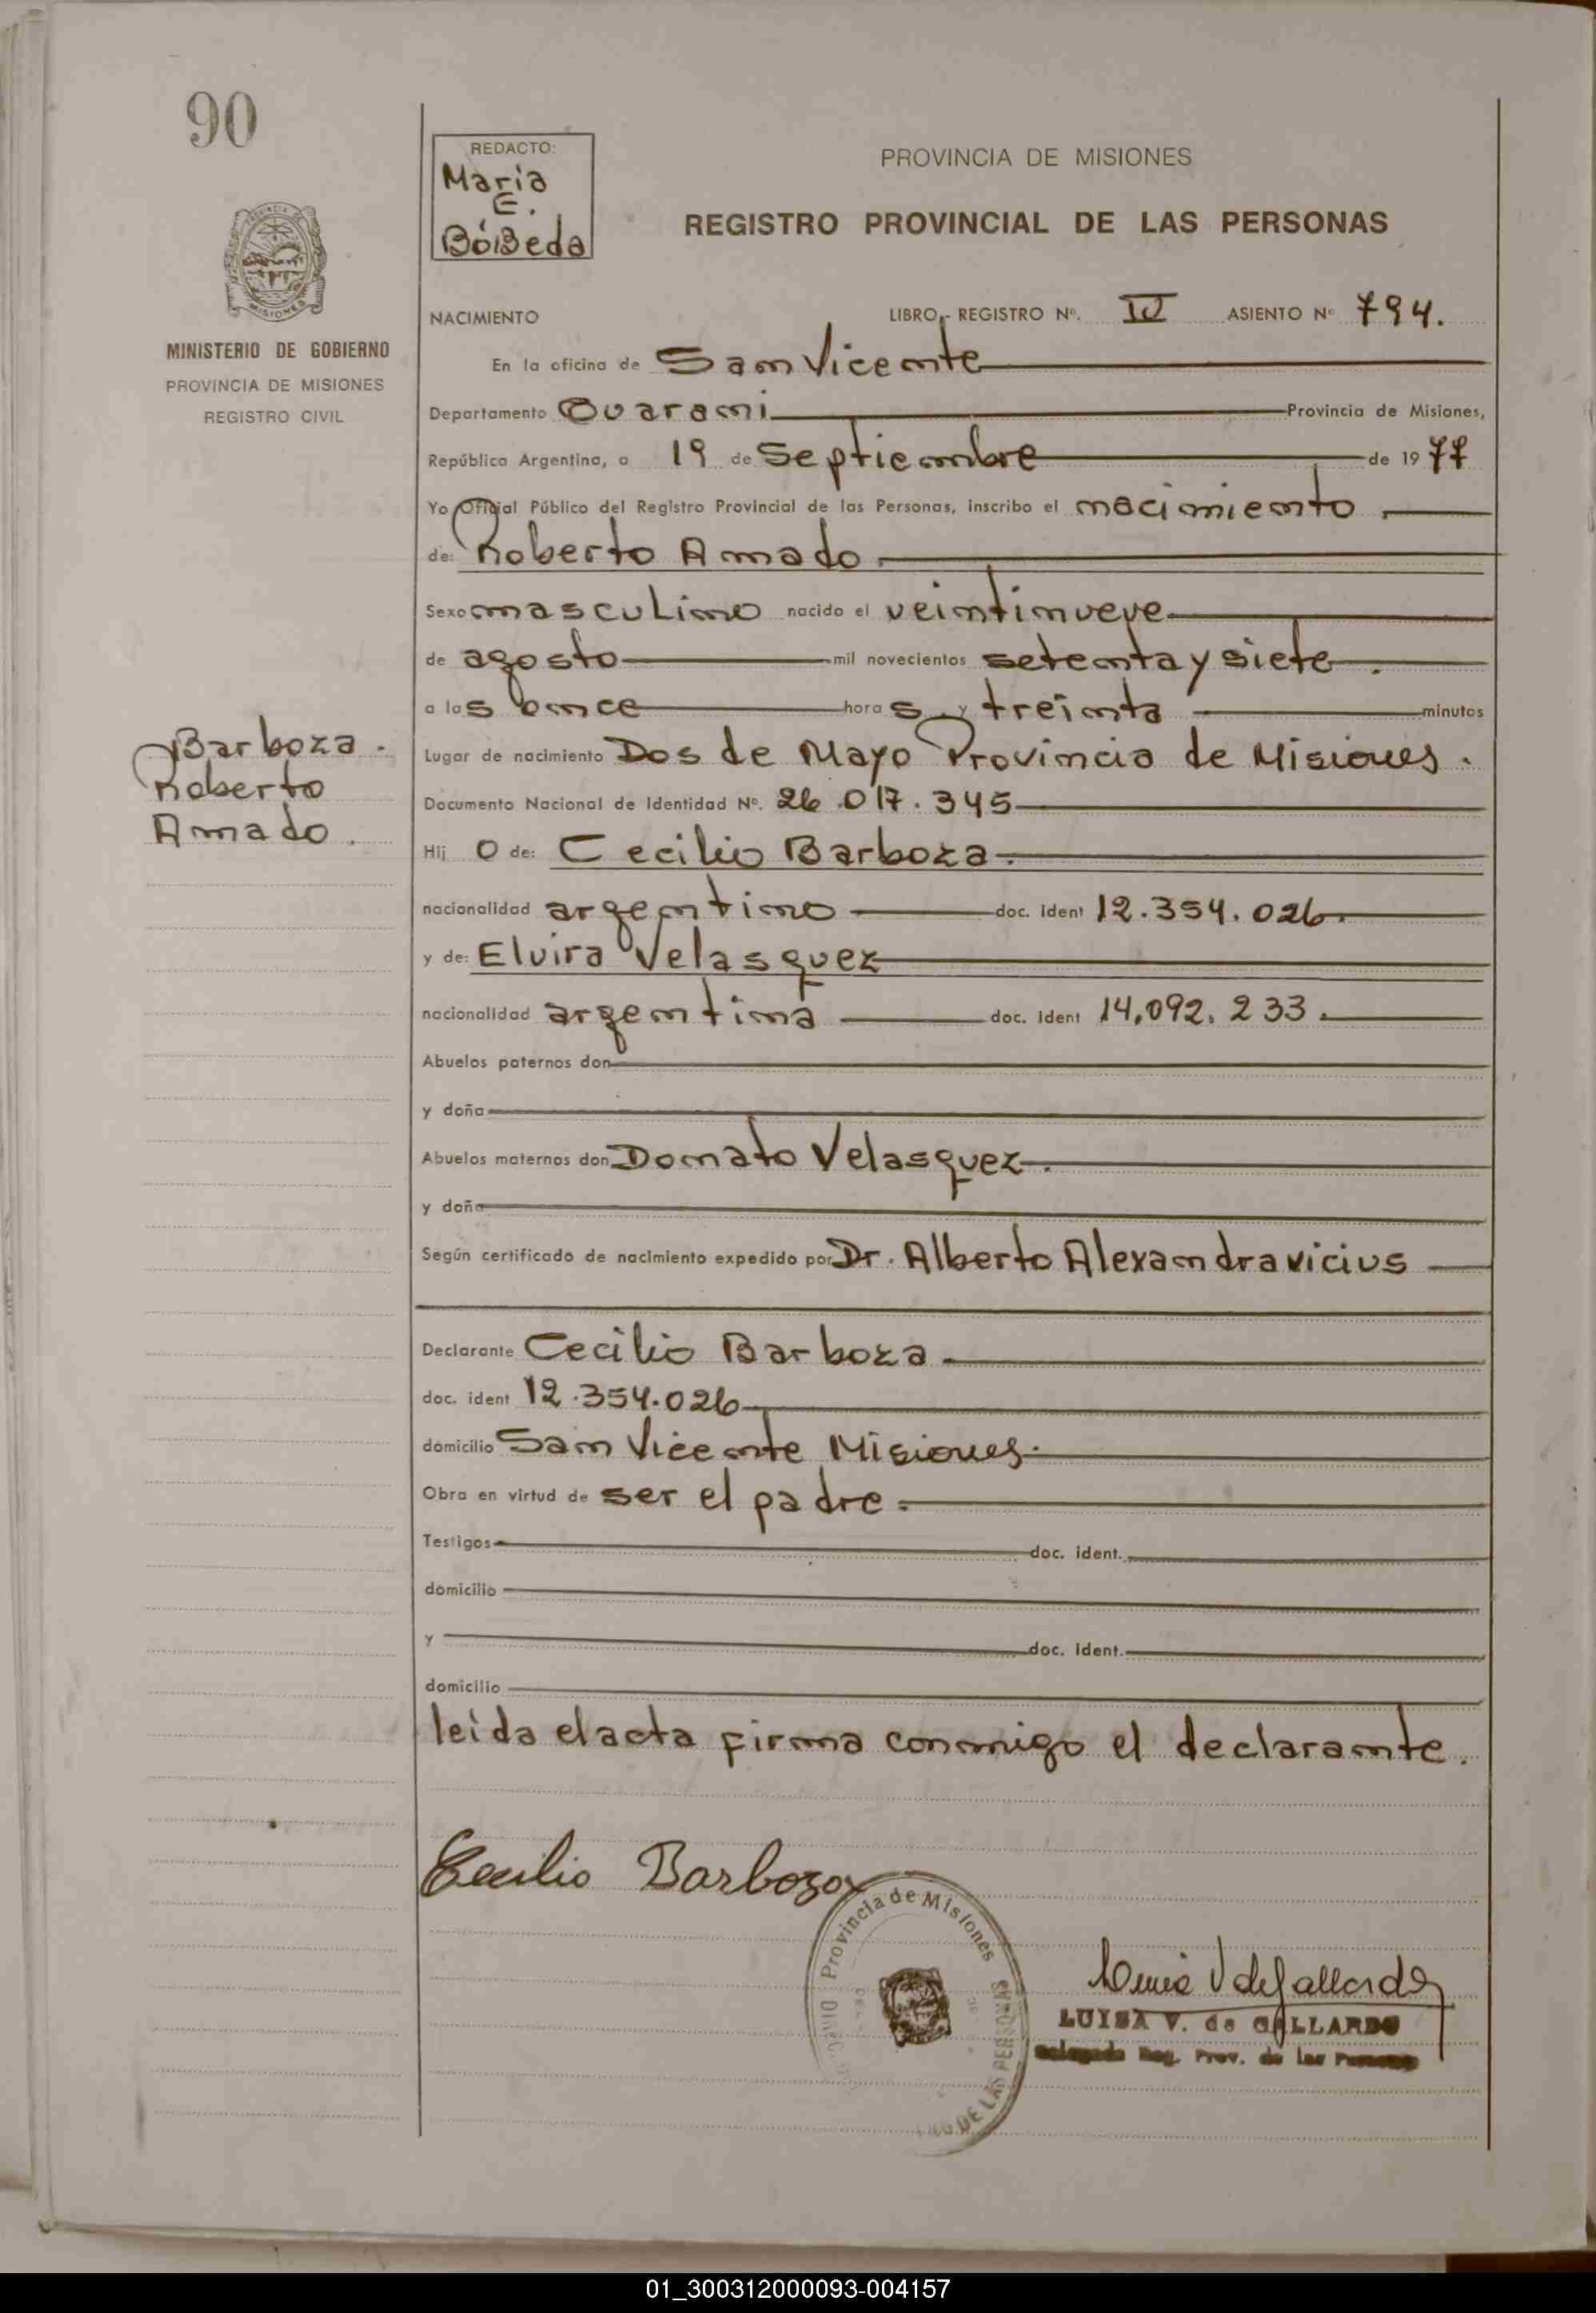 90
REDACTO:
Maria
E.
BóBeda
PROVINCIA DE MISIONES
REGISTRO PROVINCIAL DE LAS PERSONAS
MISIONES
MINISTERIO DE GOBIERNO
PROVINCIA DE MISIONES
REGISTRO CIVIL
NACIMIENTO LIBRO - REGISTRO Nº. IV ASIENTO Nº 794.
En la oficina de San Vicente
Departamento Guarani Provincia de Misiones,
República Argentina, a 19 de Septiembre de 1977
Yo Oficial Público del Registro Provincial de las Personas, inscribo el nacimiento
de: Roberto Amado
Sexo masculino nacido el veintinueve
de agosto mil novecientos setenta y siete.
a las once horas y treinta minutos
Lugar de nacimiento Dos de Mayo Provincia de Misiones.
Documento Nacional de Identidad Nº. 26.017.345
Barboza.
Roberto
Amado.
Hijo de: Cecilio Barboza.
nacionalidad argentino doc. ident 12.354.026.
y de: Elvira Velasquez
nacionalidad argentina doc. ident 14.092.233.
Abuelos paternos don
y doña
Abuelos maternos don Donato Velasquez.
y doña
Según certificado de nacimiento expedido por Dr. Alberto Alexandravicius
Declarante Cecilio Barboza
doc. ident 12.354.026
domicilio San Vicente Misiones.
Obra en virtud de ser el padre.
Testigos doc. ident.
domicilio
y doc. ident.
domicilio
leida el acta firma conmigo el declarante.
Cecilio Barboza
Provincia de Misiones
DE LAS PERSONAS
LUISA V. de GALLARDO
Delegada Reg. Prov. de las Personas
01_300312000093-004157